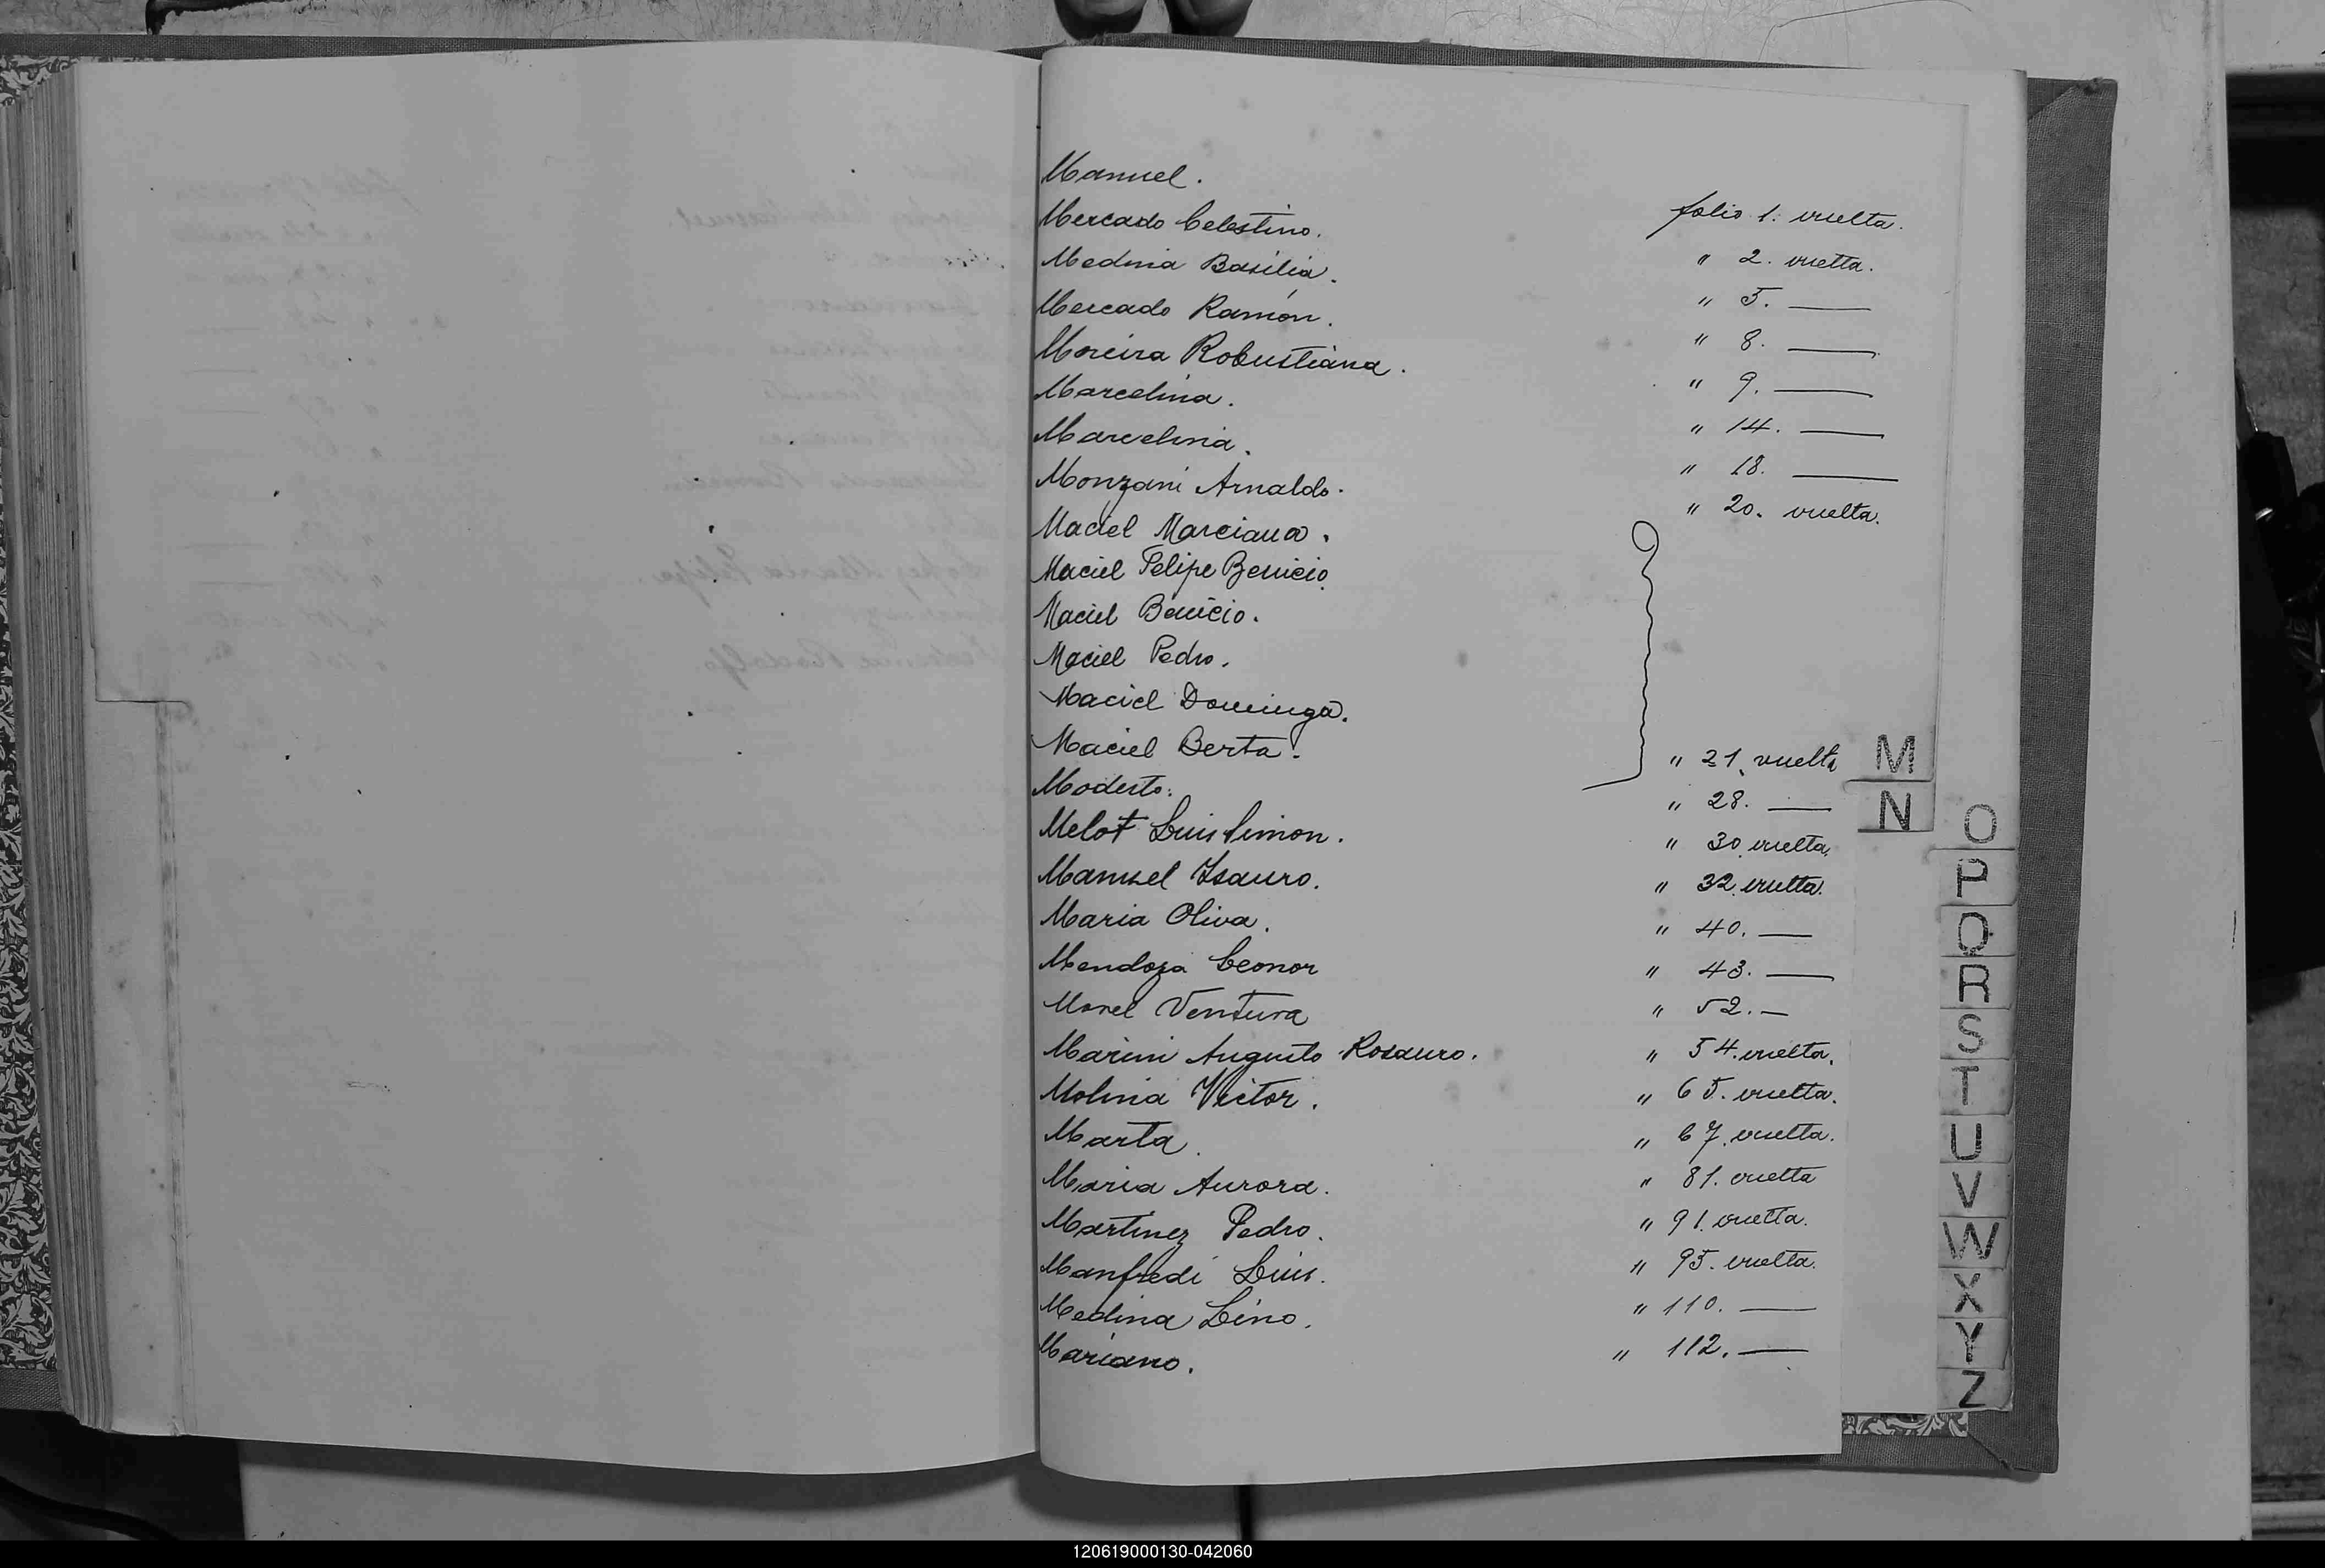 Manuel. folio 1. vuelta.
Mercado Celestino. " 2. vuelta.
Medina Basilia. " 5. ———
Mercado Ramón. " 8. ———
Moreira Robustiana. " 9. ———
Marcelina. " 14. ———
Marcelina. " 18. ———
Monzani Arnaldo. " 20. vuelta.
Maciel Marciana.
Maciel Felipe Benicio.
Maciel Benicio.
Maciel Pedro.
Maciel Dominga.
Maciel Berta. " 21. vuelta
Modesto. " 28. ———
Melot Luis Simon. " 30 vuelta.
Manuel Isauro. " 32. vuelta.
Maria Oliva. " 40. ———
Mendoza Leonor " 43. ———
Morel Ventura " 52. —
Marini Augusto Rosauro. " 54. vuelta.
Molina Victor. " 65. vuelta.
Marta. " 67. vuelta.
Maria Aurora. " 81. vuelta
Martinez Pedro. " 91. vuelta.
Manfredi Luis. " 95. vuelta.
Medina Lino. " 110. ———
Mariano. " 112. ———
M
N
O
P
Q
R
S
T
U
V
W
X
Y
Z
120619000130-042060